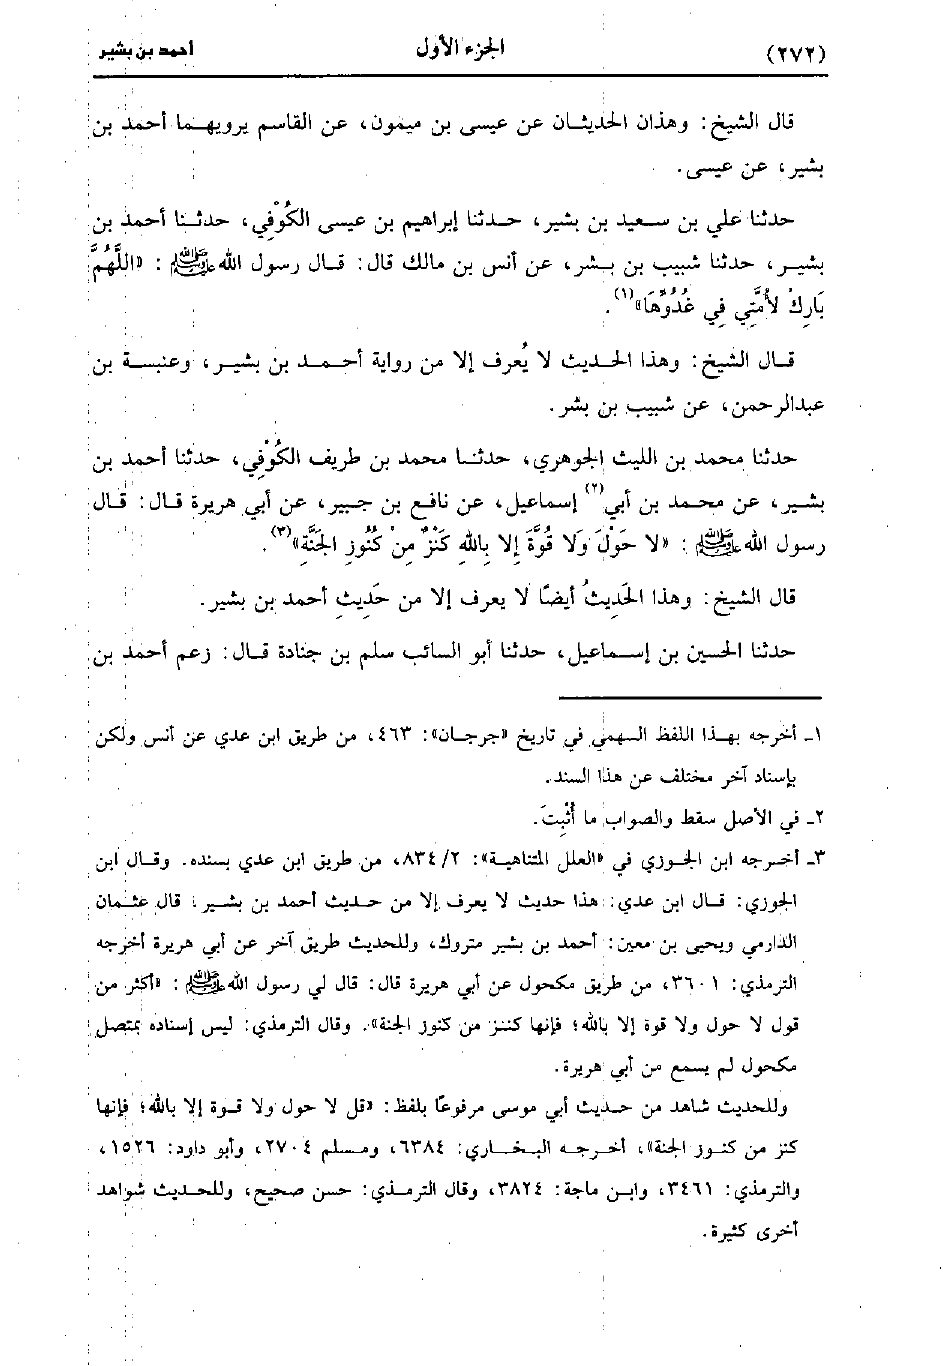 (٢٧٢) الجزء الأول أحمد بن بشير
قال الشيخ: وهذان الحديثان عن عيسى بن ميمون، عن القاسم يرويهما أحمد بن
بشير، عن عيسى.
حدثنا علي بن سعيد بن بشير، حدثنا إبراهيم بن عيسى الكُوْفِي، حدثنا أحمد بن
بشير، حدثنا شبيب بن بشر، عن أنس بن مالك قال: قال رسول الله ﷺ: «اللَّهُمَّ
بَارِكْ لأُمَّتِي فِي غُدُوِّهَا»(١).
قال الشيخ: وهذا الحديث لا يُعرف إلا من رواية أحمد بن بشير، وعنبسة بن
عبدالرحمن، عن شبيب بن بشر.
حدثنا محمد بن الليث الجوهري، حدثنا محمد بن طريف الكُوْفِي، حدثنا أحمد بن
بشير، عن محمد بن أبي(٢) إسماعيل، عن نافع بن جبير، عن أبي هريرة قال: قال
رسول الله ﷺ: «لا حَوْلَ وَلا قُوَّةَ إِلا بِاللهِ كَنْزٌ مِنْ كُنُوزِ الجَنَّةِ»(٣).
قال الشيخ: وهذا الحَدِيثُ أيضًا لا يعرف إلا من حَدِيث أحمد بن بشير.
حدثنا الحسين بن إسماعيل، حدثنا أبو السائب سلم بن جنادة قال: زعم أحمد بن
١ـ أخرجه بهذا اللفظ السهمي في تاريخ «جرجان»: ٤٦٣، من طريق ابن عدي عن أنس ولكن
بإسناد آخر مختلف عن هذا السند.
٢ـ في الأصل سقط والصواب ما أُثْبِتَ.
٣ـ أخرجه ابن الجوزي في «العلل المتناهية»: ٨٣٤/٢، من طريق ابن عدي بسنده. وقال ابن
الجوزي: قال ابن عدي: هذا حديث لا يعرف إلا من حديث أحمد بن بشير: قال عثمان
الدارمي ويحيى بن معين: أحمد بن بشير متروك، وللحديث طريق آخر عن أبي هريرة أخرجه
الترمذي: ٣٦٠١، من طريق مكحول عن أبي هريرة قال: قال لي رسول الله ﷺ: «أكثر من
قول لا حول ولا قوة إلا بالله؛ فإنها كنز من كنوز الجنة». وقال الترمذي: ليس إسناده بمتصل
مكحول لم يسمع من أبي هريرة.
وللحديث شاهد من حديث أبي موسى مرفوعًا بلفظ: «قل لا حول ولا قوة إلا بالله؛ فإنها
كنز من كنوز الجنة»، أخرجه البخاري: ٦٣٨٤، ومسلم ٢٧٠٤، وأبو داود: ١٥٢٦،
والترمذي: ٣٤٦١، وابن ماجة: ٣٨٢٤، وقال الترمذي: حسن صحيح، وللحديث شواهد
أخرى كثيرة.